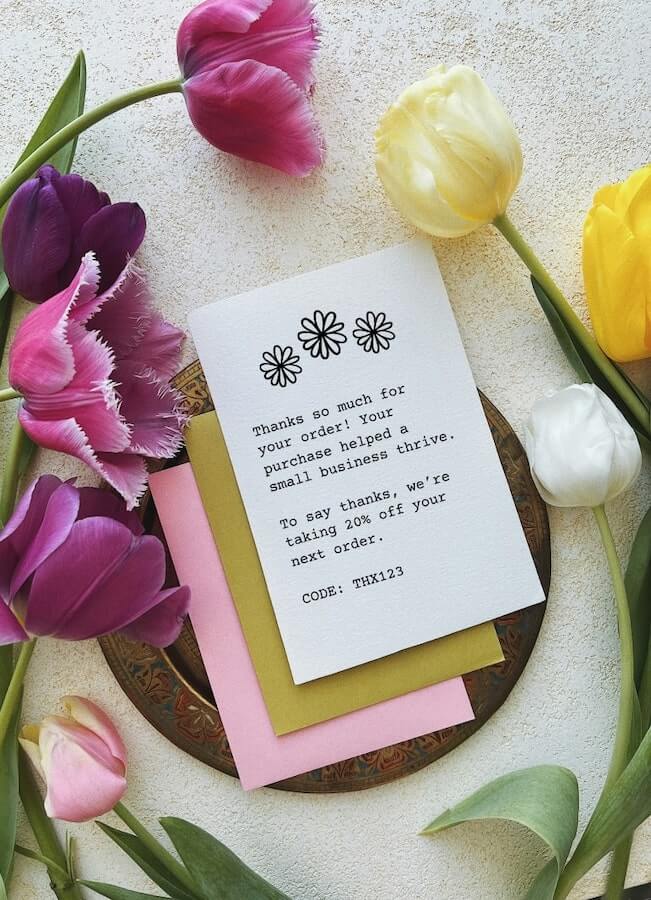 Thanks so much for
your order! Your
purchase helped a
small business thrive.
To say thanks, we're
taking 20% off your
next order.
CODE: THX123